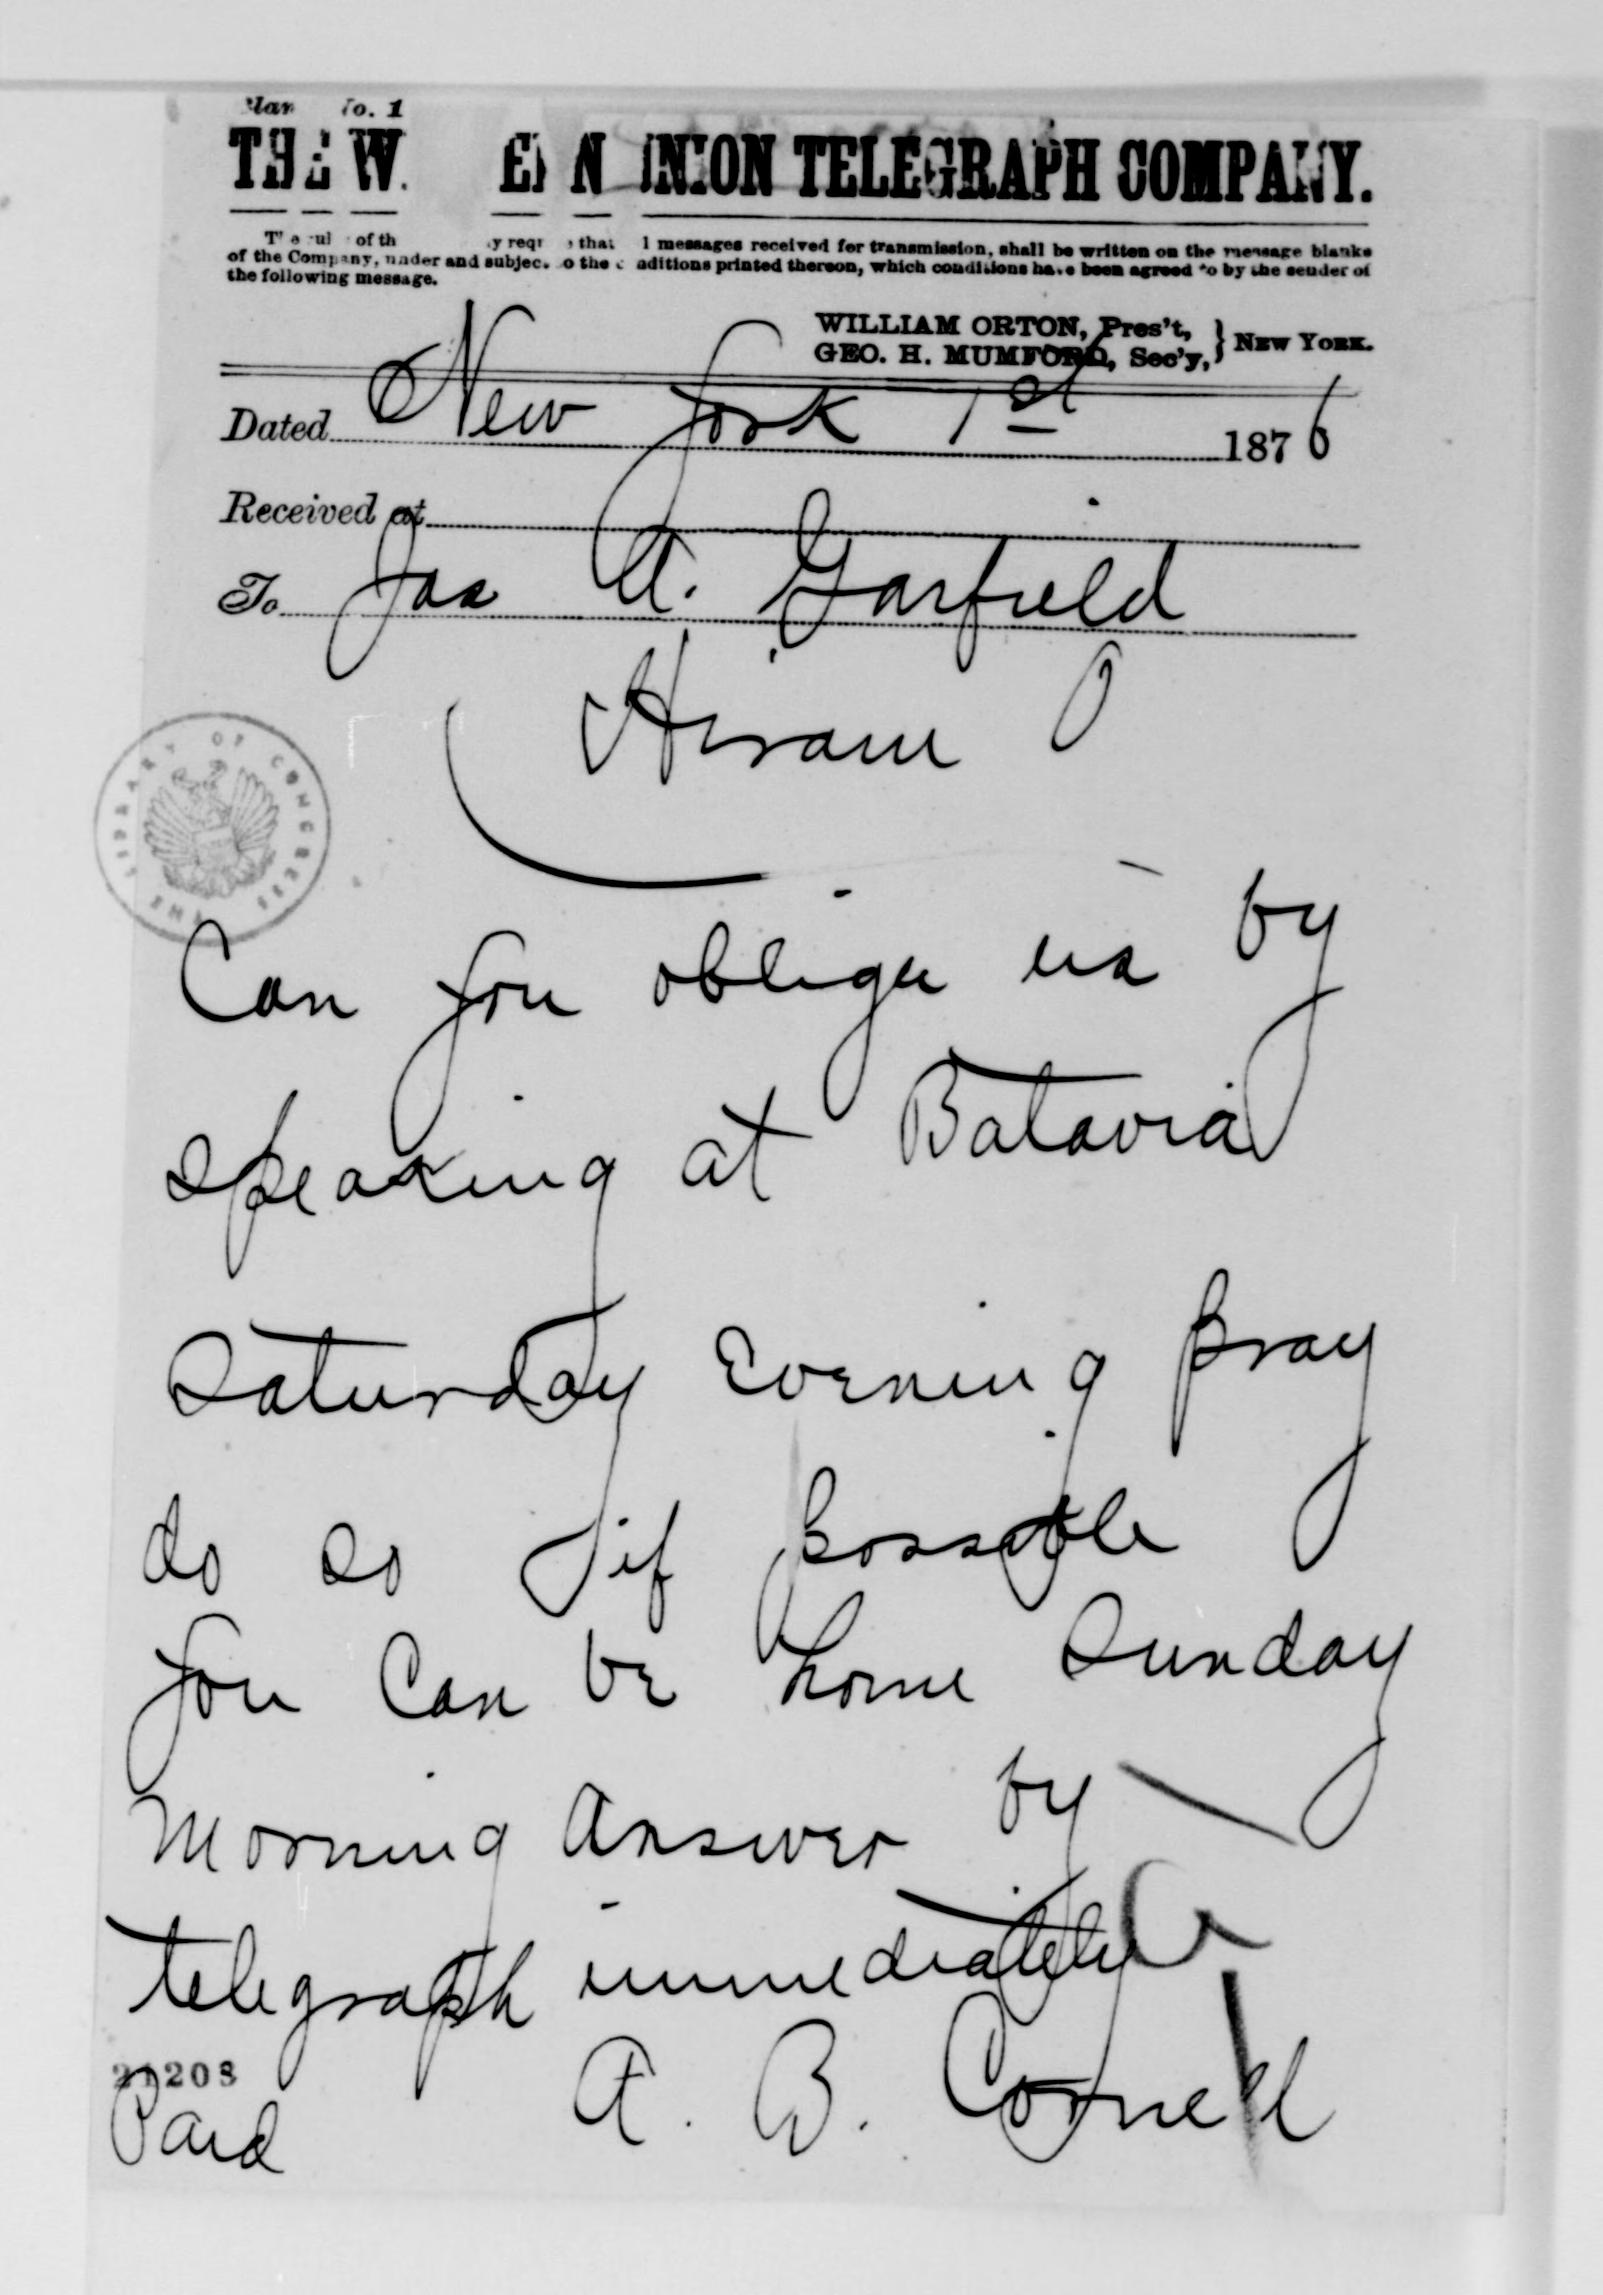 No. 1
THE WESTERN UNION TELEGRAPH COMPANY.
that all messages received for transmission, shall be written on the message blanks
of the Company, under and subject to the conditions printed thereon, which conditions have been agreed to by the sender of
the following message.
WILLIAM ORTON, Pres't,
GEO. H. MUMFORD, Sec'y, } NEW YORK.
Dated New York 1st 1876
Received at
To Jas A. Garfield
Hiram O
THE LIBRARY OF CONGRESS
Can you oblige us by
speaking at Batavia
Saturday Evening pray
do so if possible
you can be home Sunday
Morning Answer by
telegraph immediately
21208
A. B. Cornell
Paid